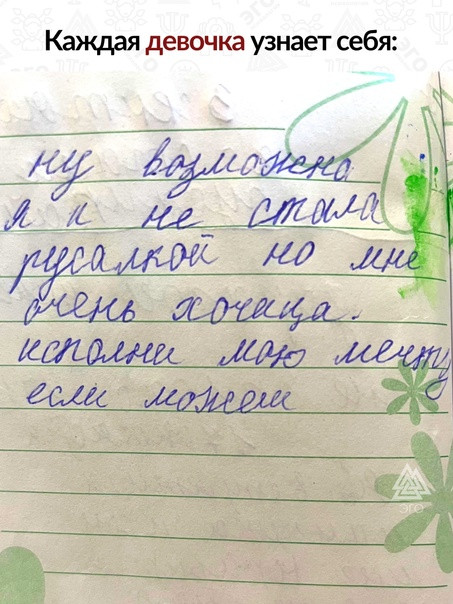 Каждая девочка узнает себя:
ну возможно
я и не стала
русалкой но мне
очень хочица.
исполни мою мечту
если можеш
ЭГО